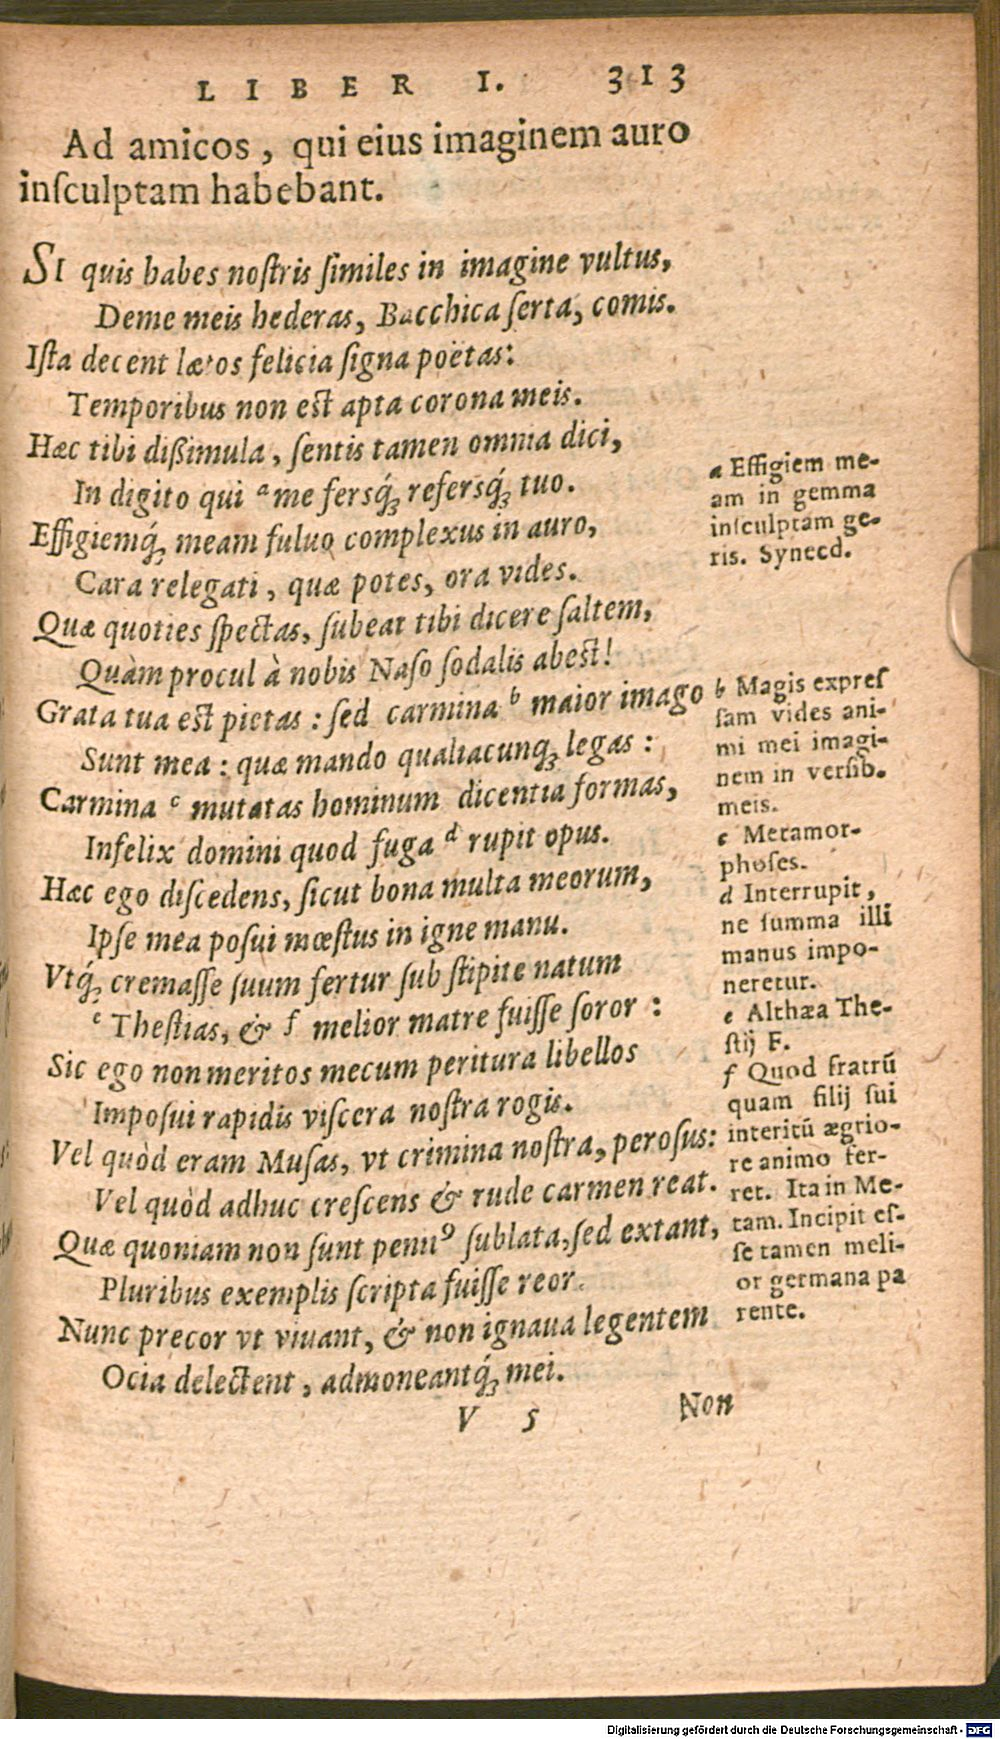 LIBER I. 313
Ad amicos, qui eius imaginem auro
inſculptam habebant.
SI quis habes noſtris ſimiles in imagine vultus,
Deme meis hederas, Bacchica ſerta, comis.
Iſta decent lætos felicia ſigna poëtas:
Temporibus non est apta corona meis.
Hæc tibi dißimula, ſentis tamen omnia dici,
In digito qui a me ferſq́ꝫ referſq́ꝫ tuo.
Effigiemq́ꝫ meam fuluo complexus in auro,
Cara relegati, quæ potes, ora vides.
Quæ quoties ſpectas, ſubeat tibi dicere ſaltem,
Quàm procul à nobis Naſo ſodalis abest!
Grata tua est pietas: ſed carmina b maior imago
Sunt mea: quæ mando qualiacunqꝫ legas:
Carmina c mutatas hominum dicentia formas,
Infelix domini quod fuga d rupit opus.
Hæc ego diſcedens, ſicut bona multa meorum,
Ipſe mea poſui mœſtus in igne manu.
Vtq́ꝫ cremaſſe ſuum fertur ſub ſtipite natum
e Theſtias, & f melior matre fuiſſe ſoror:
Sic ego non meritos mecum peritura libellos
Impoſui rapidis viſcera noſtra rogis.
Vel quòd eram Muſas, vt crimina noſtra, peroſus:
Vel quòd adhuc creſcens & rude carmen reat.
Quæ quoniam non ſunt penitꝰ ſublata, ſed extant,
Pluribus exemplis ſcripta fuiſſe reor.
Nunc precor vt viuant, & non ignaua legentem
Ocia delectent, admoneantq́ꝫ mei.
V 5 Non
a Effigiem me-
am in gemma
inſculptam ge-
ris. Synecd.
b Magis expreſ
ſam vides ani-
mi mei imagi-
nem in verſib.
meis.
c Metamor-
phoſes.
d Interrupit,
ne ſumma illi
manus impo-
neretur.
e Althæa The-
ſtij F.
f Quod fratrū
quam filij ſui
interitū ægrio-
re animo fer-
ret. Ita in Me-
tam. Incipit eſ-
ſe tamen meli-
or germana pa
rente.
Digitalisierung gefördert durch die Deutsche Forschungsgemeinschaft - DFG